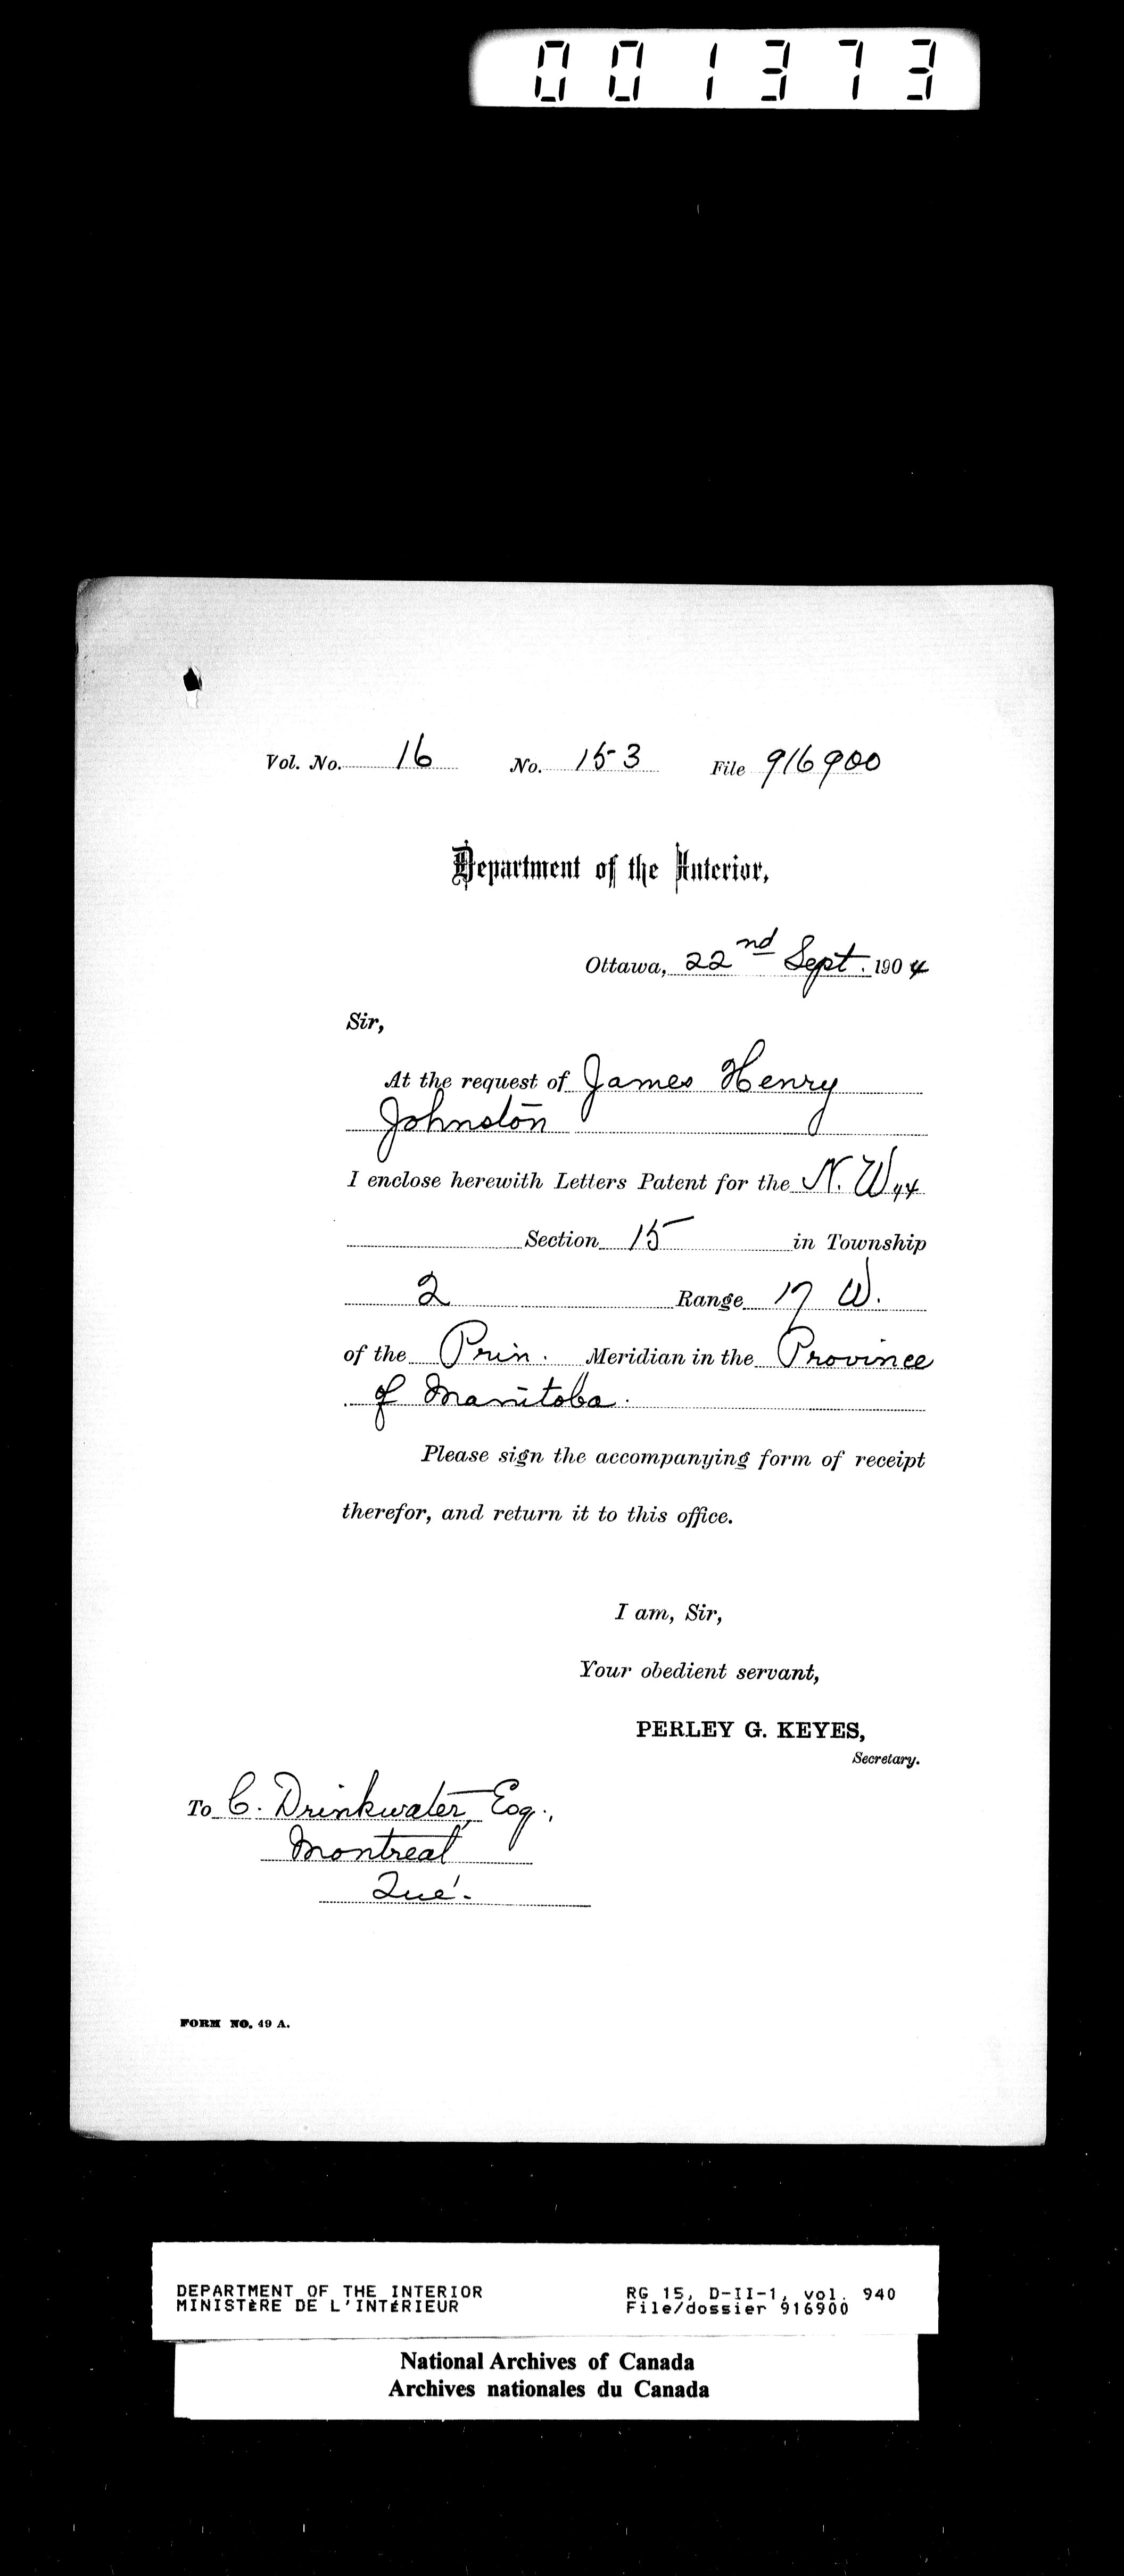 001373
Vol. No. 16 No. 153 File 916900
Department of the Interior,
Ottawa, 22nd Sept. 1904
Sir,
At the request of James Henry
Johnston
I enclose herewith Letters Patent for the N. W 1/4
Section 15 in Township
2 Range 17 W.
of the Prin. Meridian in the Province
of Manitoba.
Please sign the accompanying form of receipt
therefor, and return it to this office.
I am, Sir,
Your obedient servant,
PERLEY G. KEYES,
Secretary.
To C. Drinkwater, Esq.,
Montreal
Qué.
FORM NO. 49 A.
DEPARTMENT OF THE INTERIOR RG 15, D-II-1, vol. 940
MINISTÈRE DE L'INTÉRIEUR File/dossier 916900
National Archives of Canada
Archives nationales du Canada